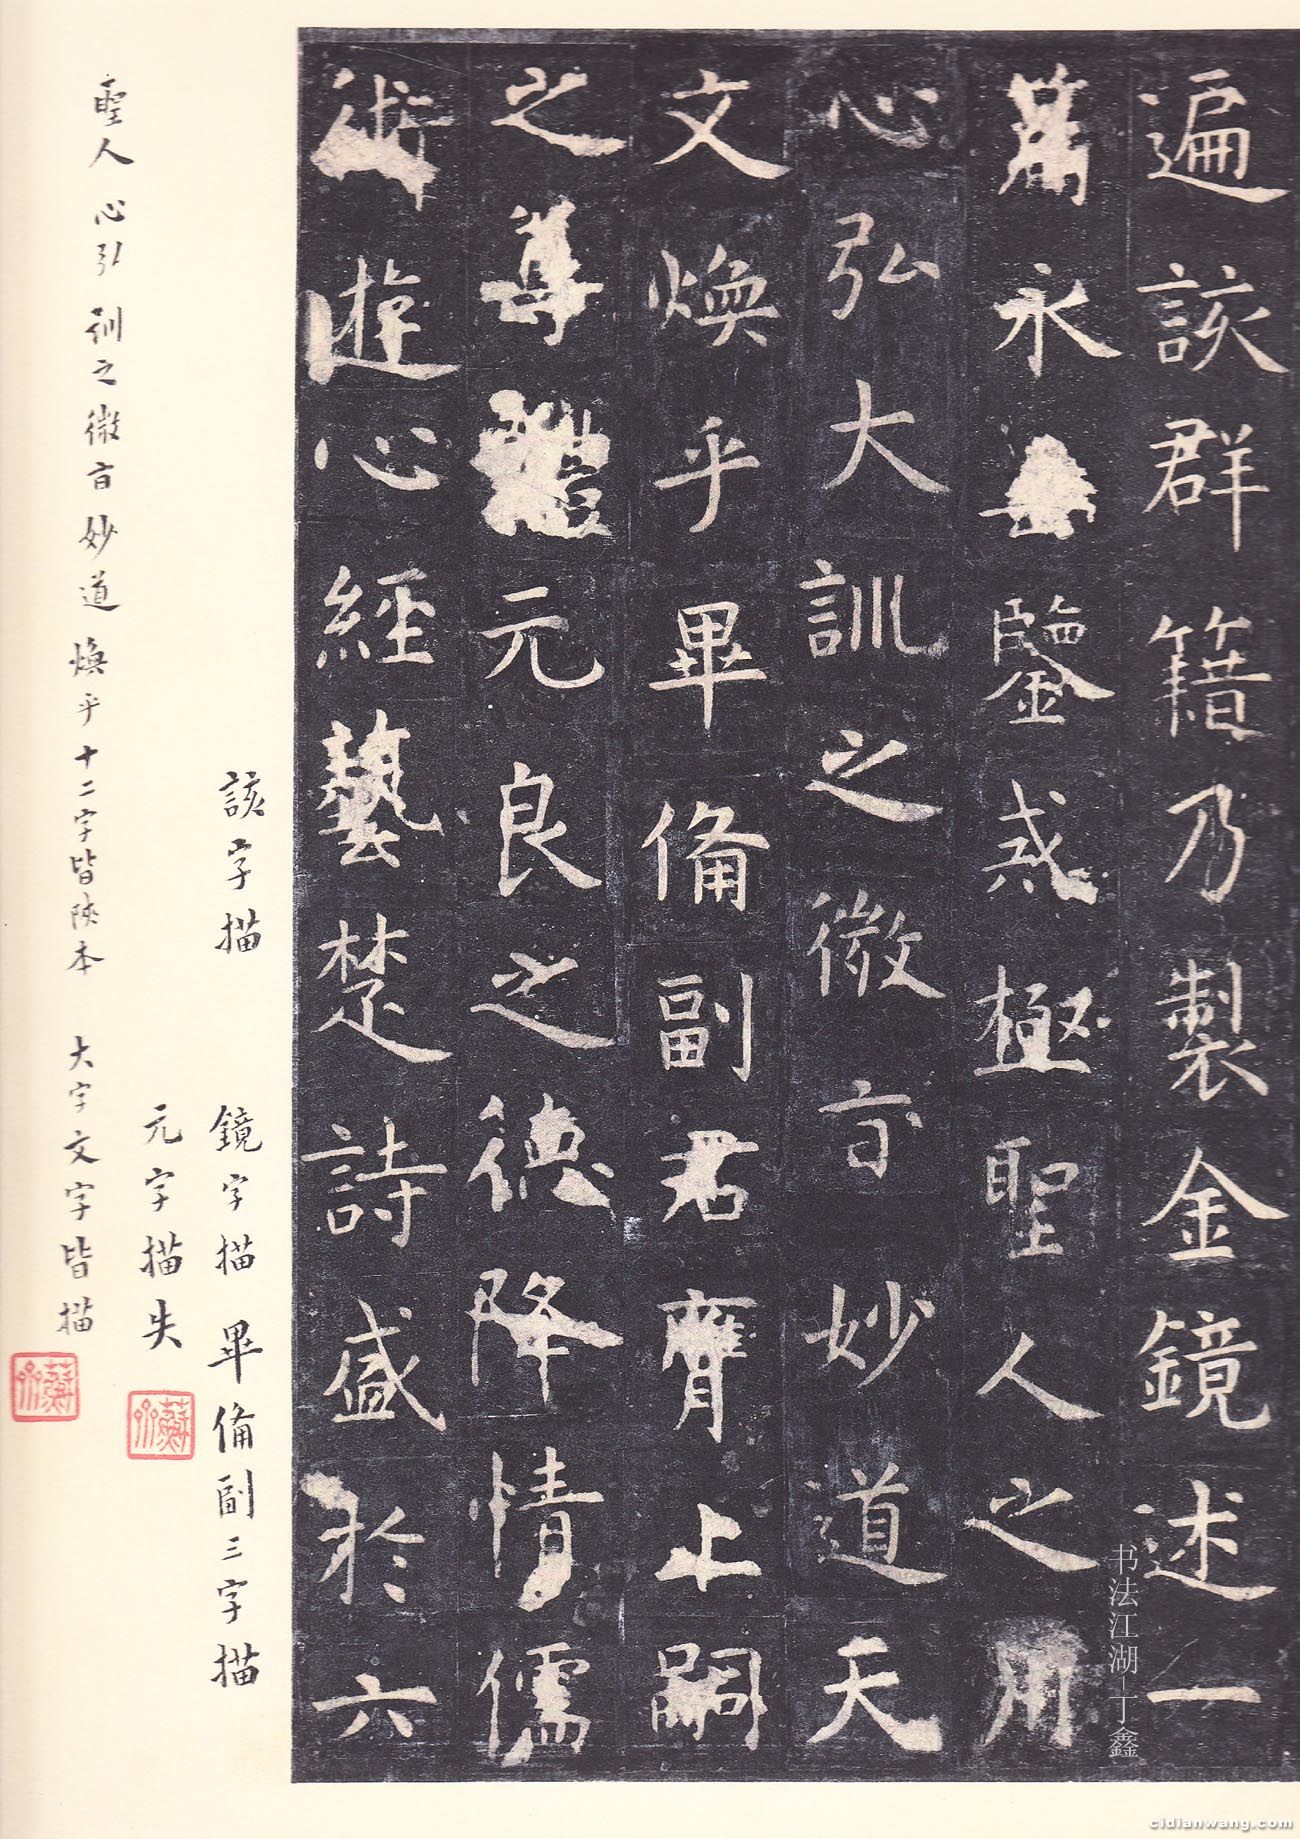 遍該群籍乃製金鏡述一
篇永垂鑒戒極聖人之用
心弘大訓之微旨妙道天
文煥乎畢備副君膺上嗣
之尊體元良之德降情儒
術遊心經藝楚詩盛於六
該字描
鏡字描 畢備副三字描
元字描失
聖人心弘訓之微旨妙道煥乎十二字皆陝本 大字文字皆描
书法江湖-丁鑫
cidianwang.com